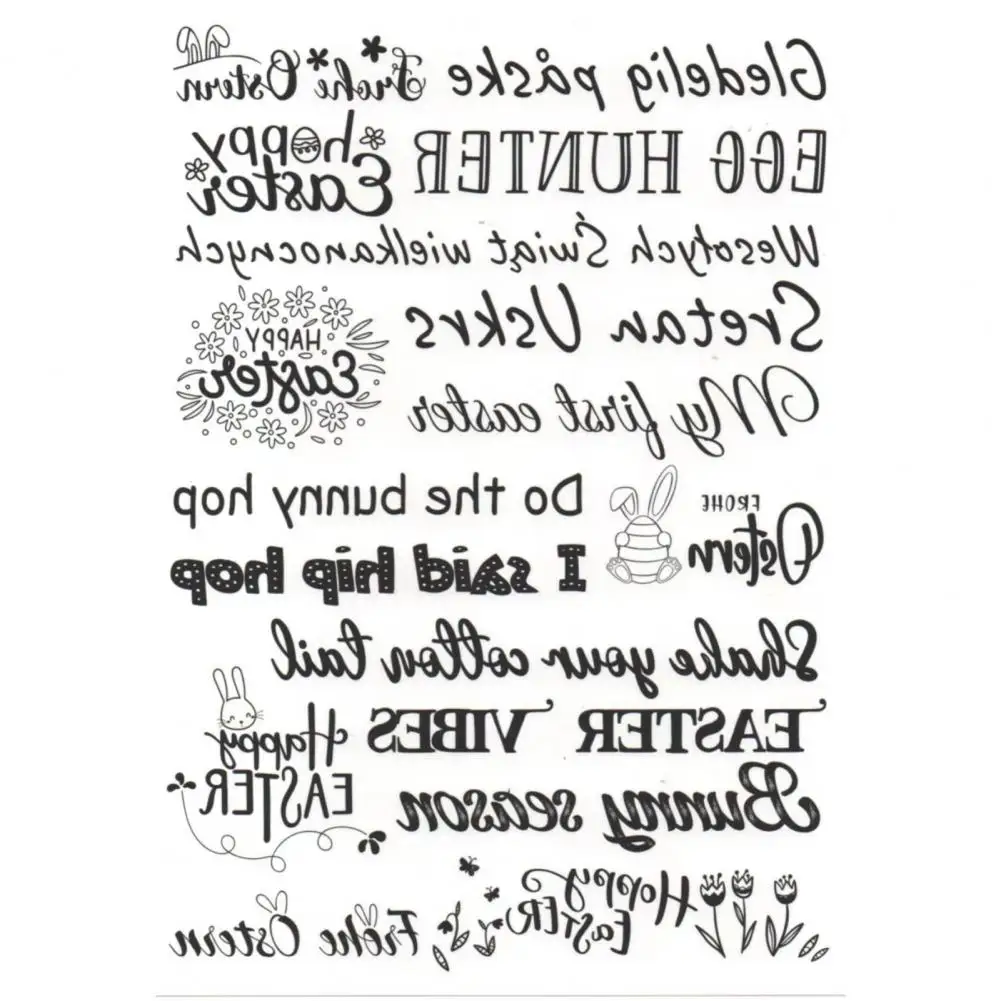 Gledelig påske
Frohe Ostern
EGG HUNTER
hoppy
Easter
Wesołych Świąt wielkanocnych
Sretan Uskrs
HAPPY
Easter
My first easter
FROHE
Ostern
Do the bunny hop
I said hip hop
Shake your cotton tail
EASTER VIBES
Happy
EASTER
Bunny season
Hoppy
EaSTER
Frohe Ostern